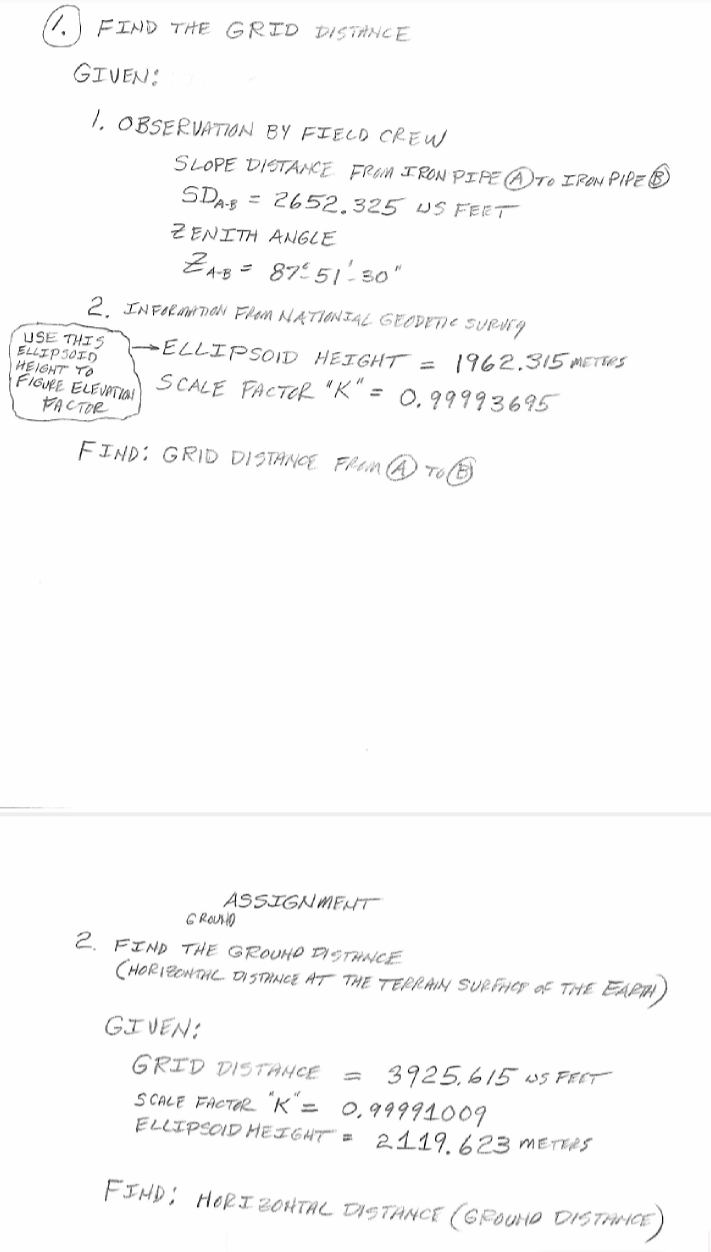 1. FIND THE GRID DISTANCE
GIVEN:
1. OBSERVATION BY FIELD CREW
SLOPE DISTANCE FROM IRON PIPE (A) TO IRON PIPE (B)
SD A-B = 2652.325 US FEET
ZENITH ANGLE
Z A-B = 87°-51'-30"
2. INFORMATION FROM NATIONIAL GEODETIC SURVEY
USE THIS
ELLIPSOID
HEIGHT TO
FIGURE ELEVATION
FACTOR
→ ELLIPSOID HEIGHT = 1962.315 METERS
SCALE FACTOR "K" = 0.99993695
FIND: GRID DISTANCE FROM (A) TO (B)
ASSIGNMENT
GROUND
2. FIND THE GROUND DISTANCE
(HORIZONTAL DISTANCE AT THE TERRAIN SURFACE OF THE EARTH)
GIVEN:
GRID DISTANCE = 3925.615 US FEET
SCALE FACTOR "K" = 0.99991009
ELLIPSOID HEIGHT = 2119.623 METERS
FIND: HORIZONTAL DISTANCE (GROUND DISTANCE)